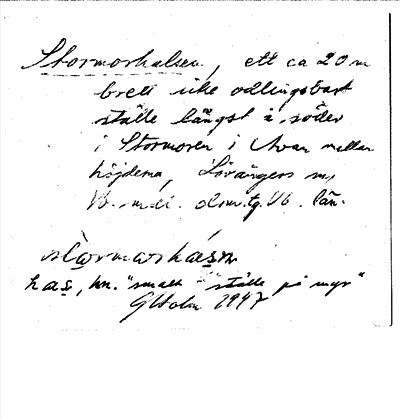 Stormorhalsen, ett ca 20 m
brett icke odlingsbart
ställe längst i söder
i Stormoren i Avan mellan
höjderna, Lövångers sn,
Vb. m.ti. dom.tg. Vb. län.
stòrmorháḷsn
haḷs, hn. "smalt ställe på myr"
G Holm 1947